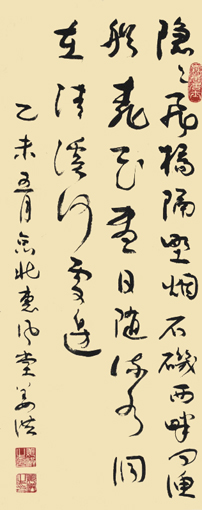 隐〻飛橋隔野烟石磯西畔问漁
船花盡日随流水洞
在清溪何處邊
乙未五月惠風堂